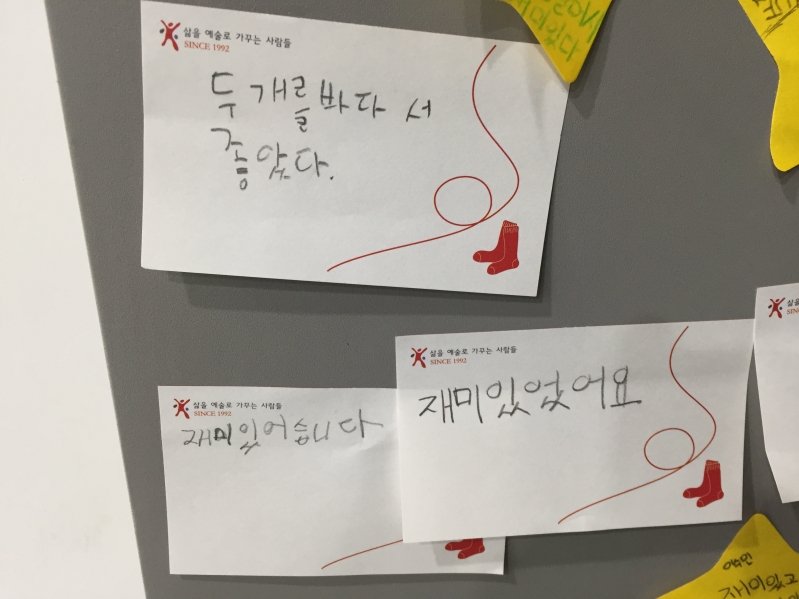 삶을 예술로 가꾸는 사람들
SINCE 1992
두개를바다서
좋았다.
재미있다
삶을 예술로 가꾸는 사람들
SINCE 1992
재미있었어요
삶을 예술로 가꾸는 사람들
SINCE 1992
재미있어습니다
삶을
SINCE
재미있고